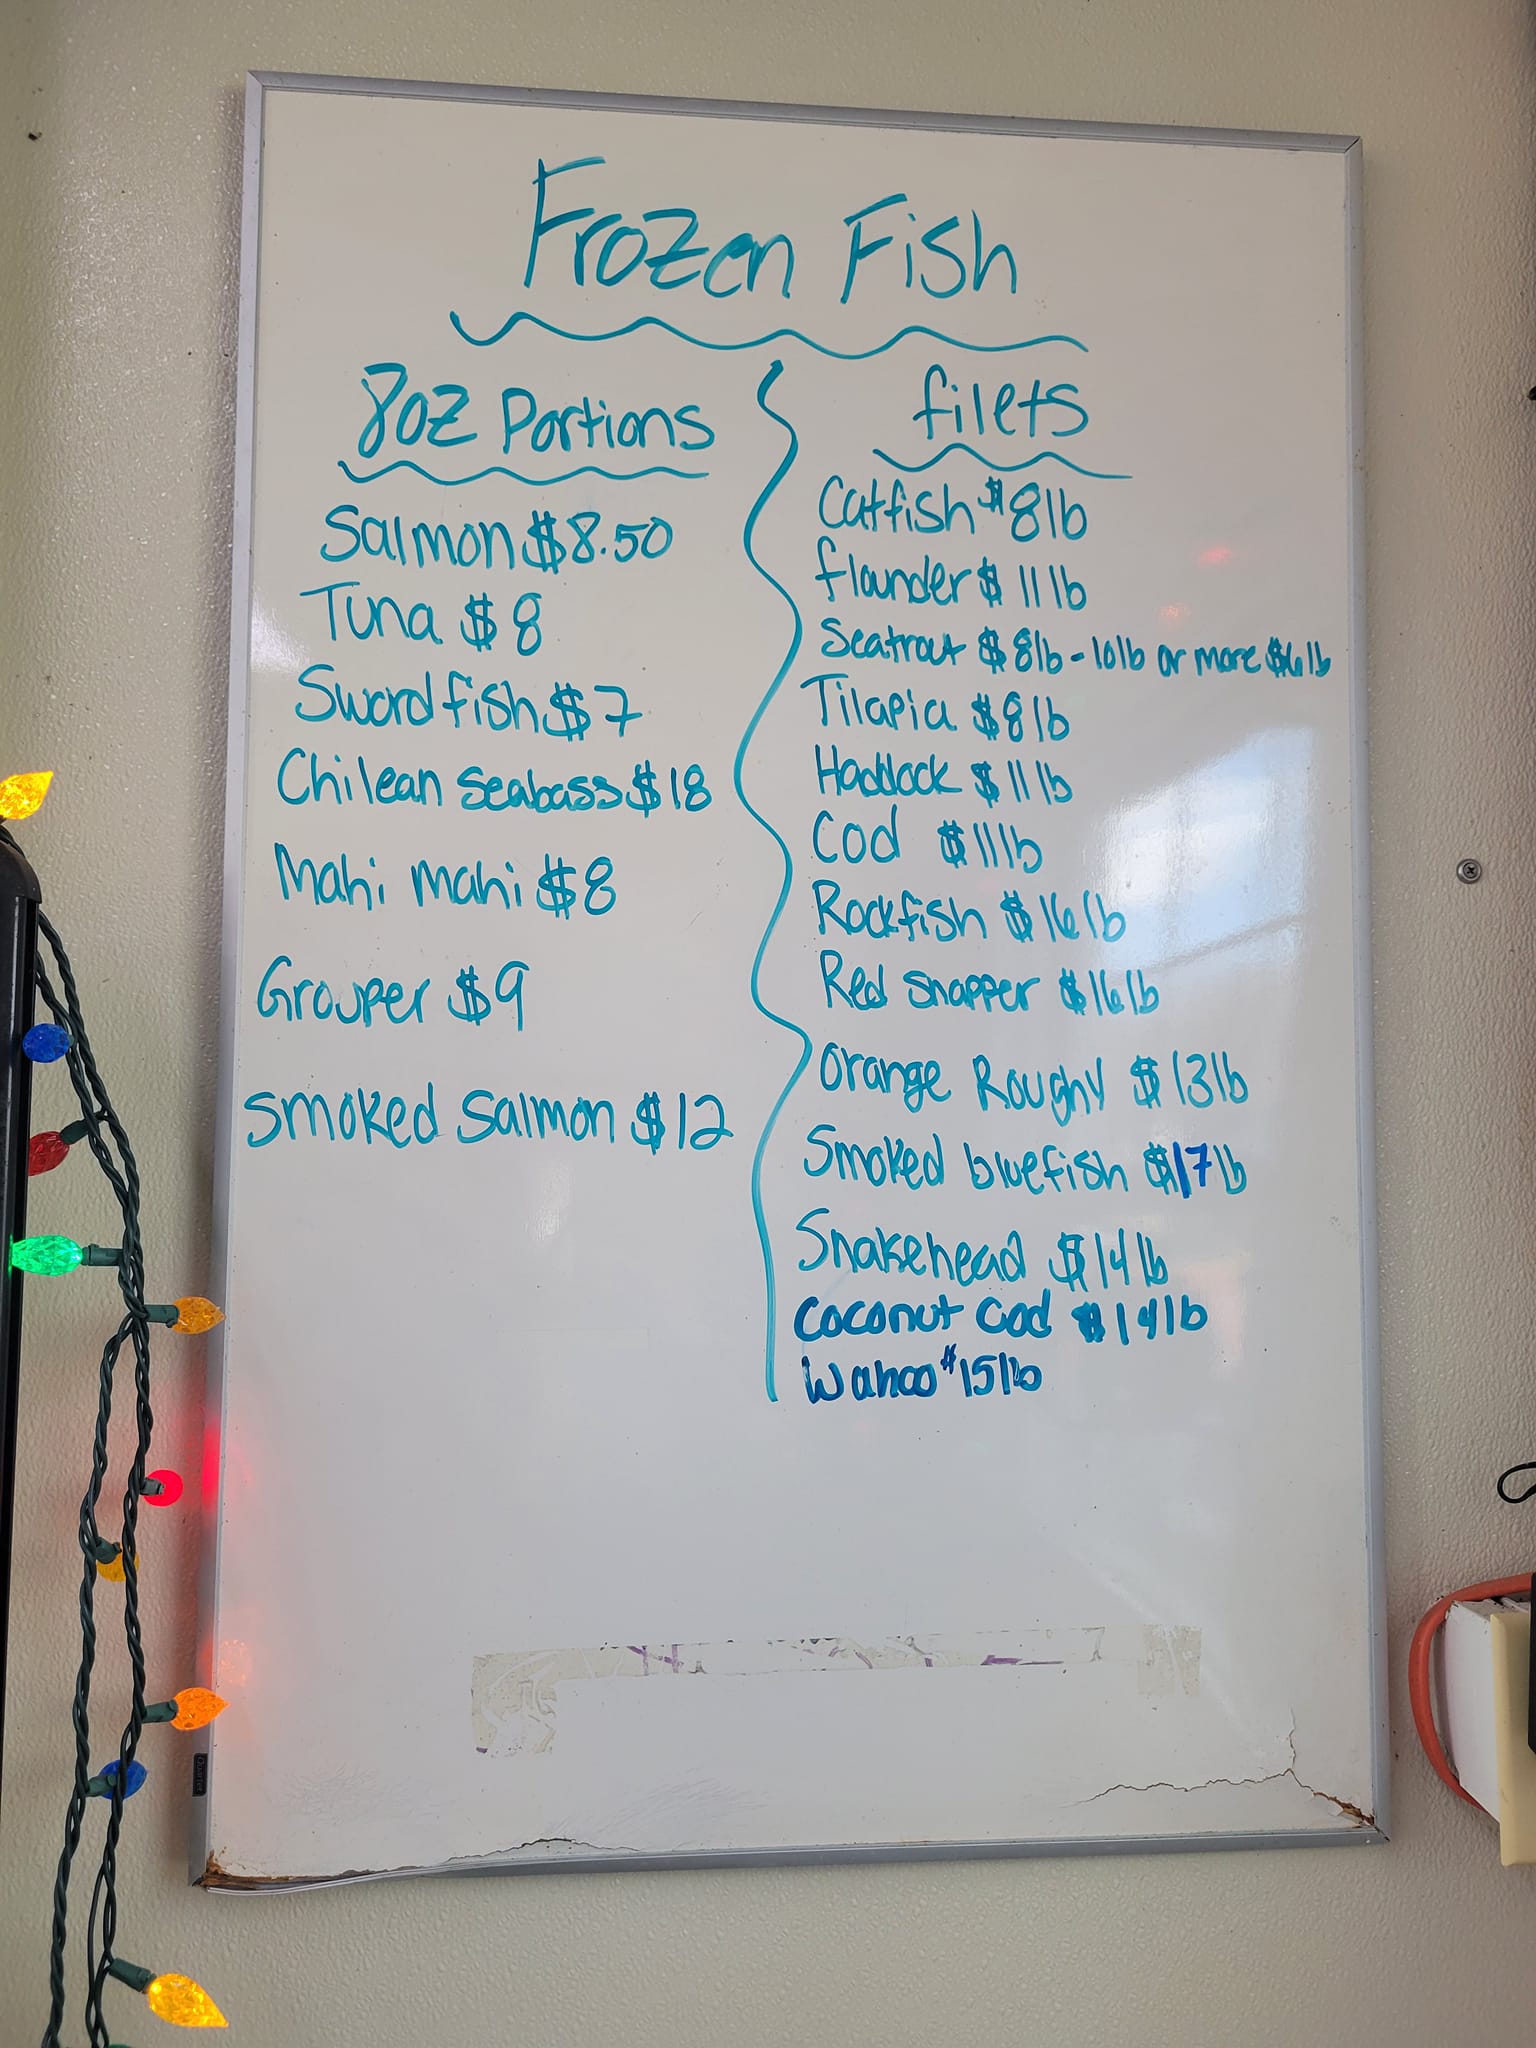 Frozen Fish
8oz Portions
Salmon $8.50
Tuna $8
Swordfish $7
Chilean Seabass $18
Mahi Mahi $8
Grouper $9
Smoked Salmon $12
filets
Catfish $8lb
flounder $11lb
Seatrout $8lb - 10lb or more $6lb
Tilapia $8lb
Haddock $11lb
Cod $11lb
Rockfish $16lb
Red Snapper $16lb
Orange Roughy $13lb
Smoked bluefish $17lb
Snakehead $14lb
Coconut Cod $14lb
Wahoo $15lb
Quartet